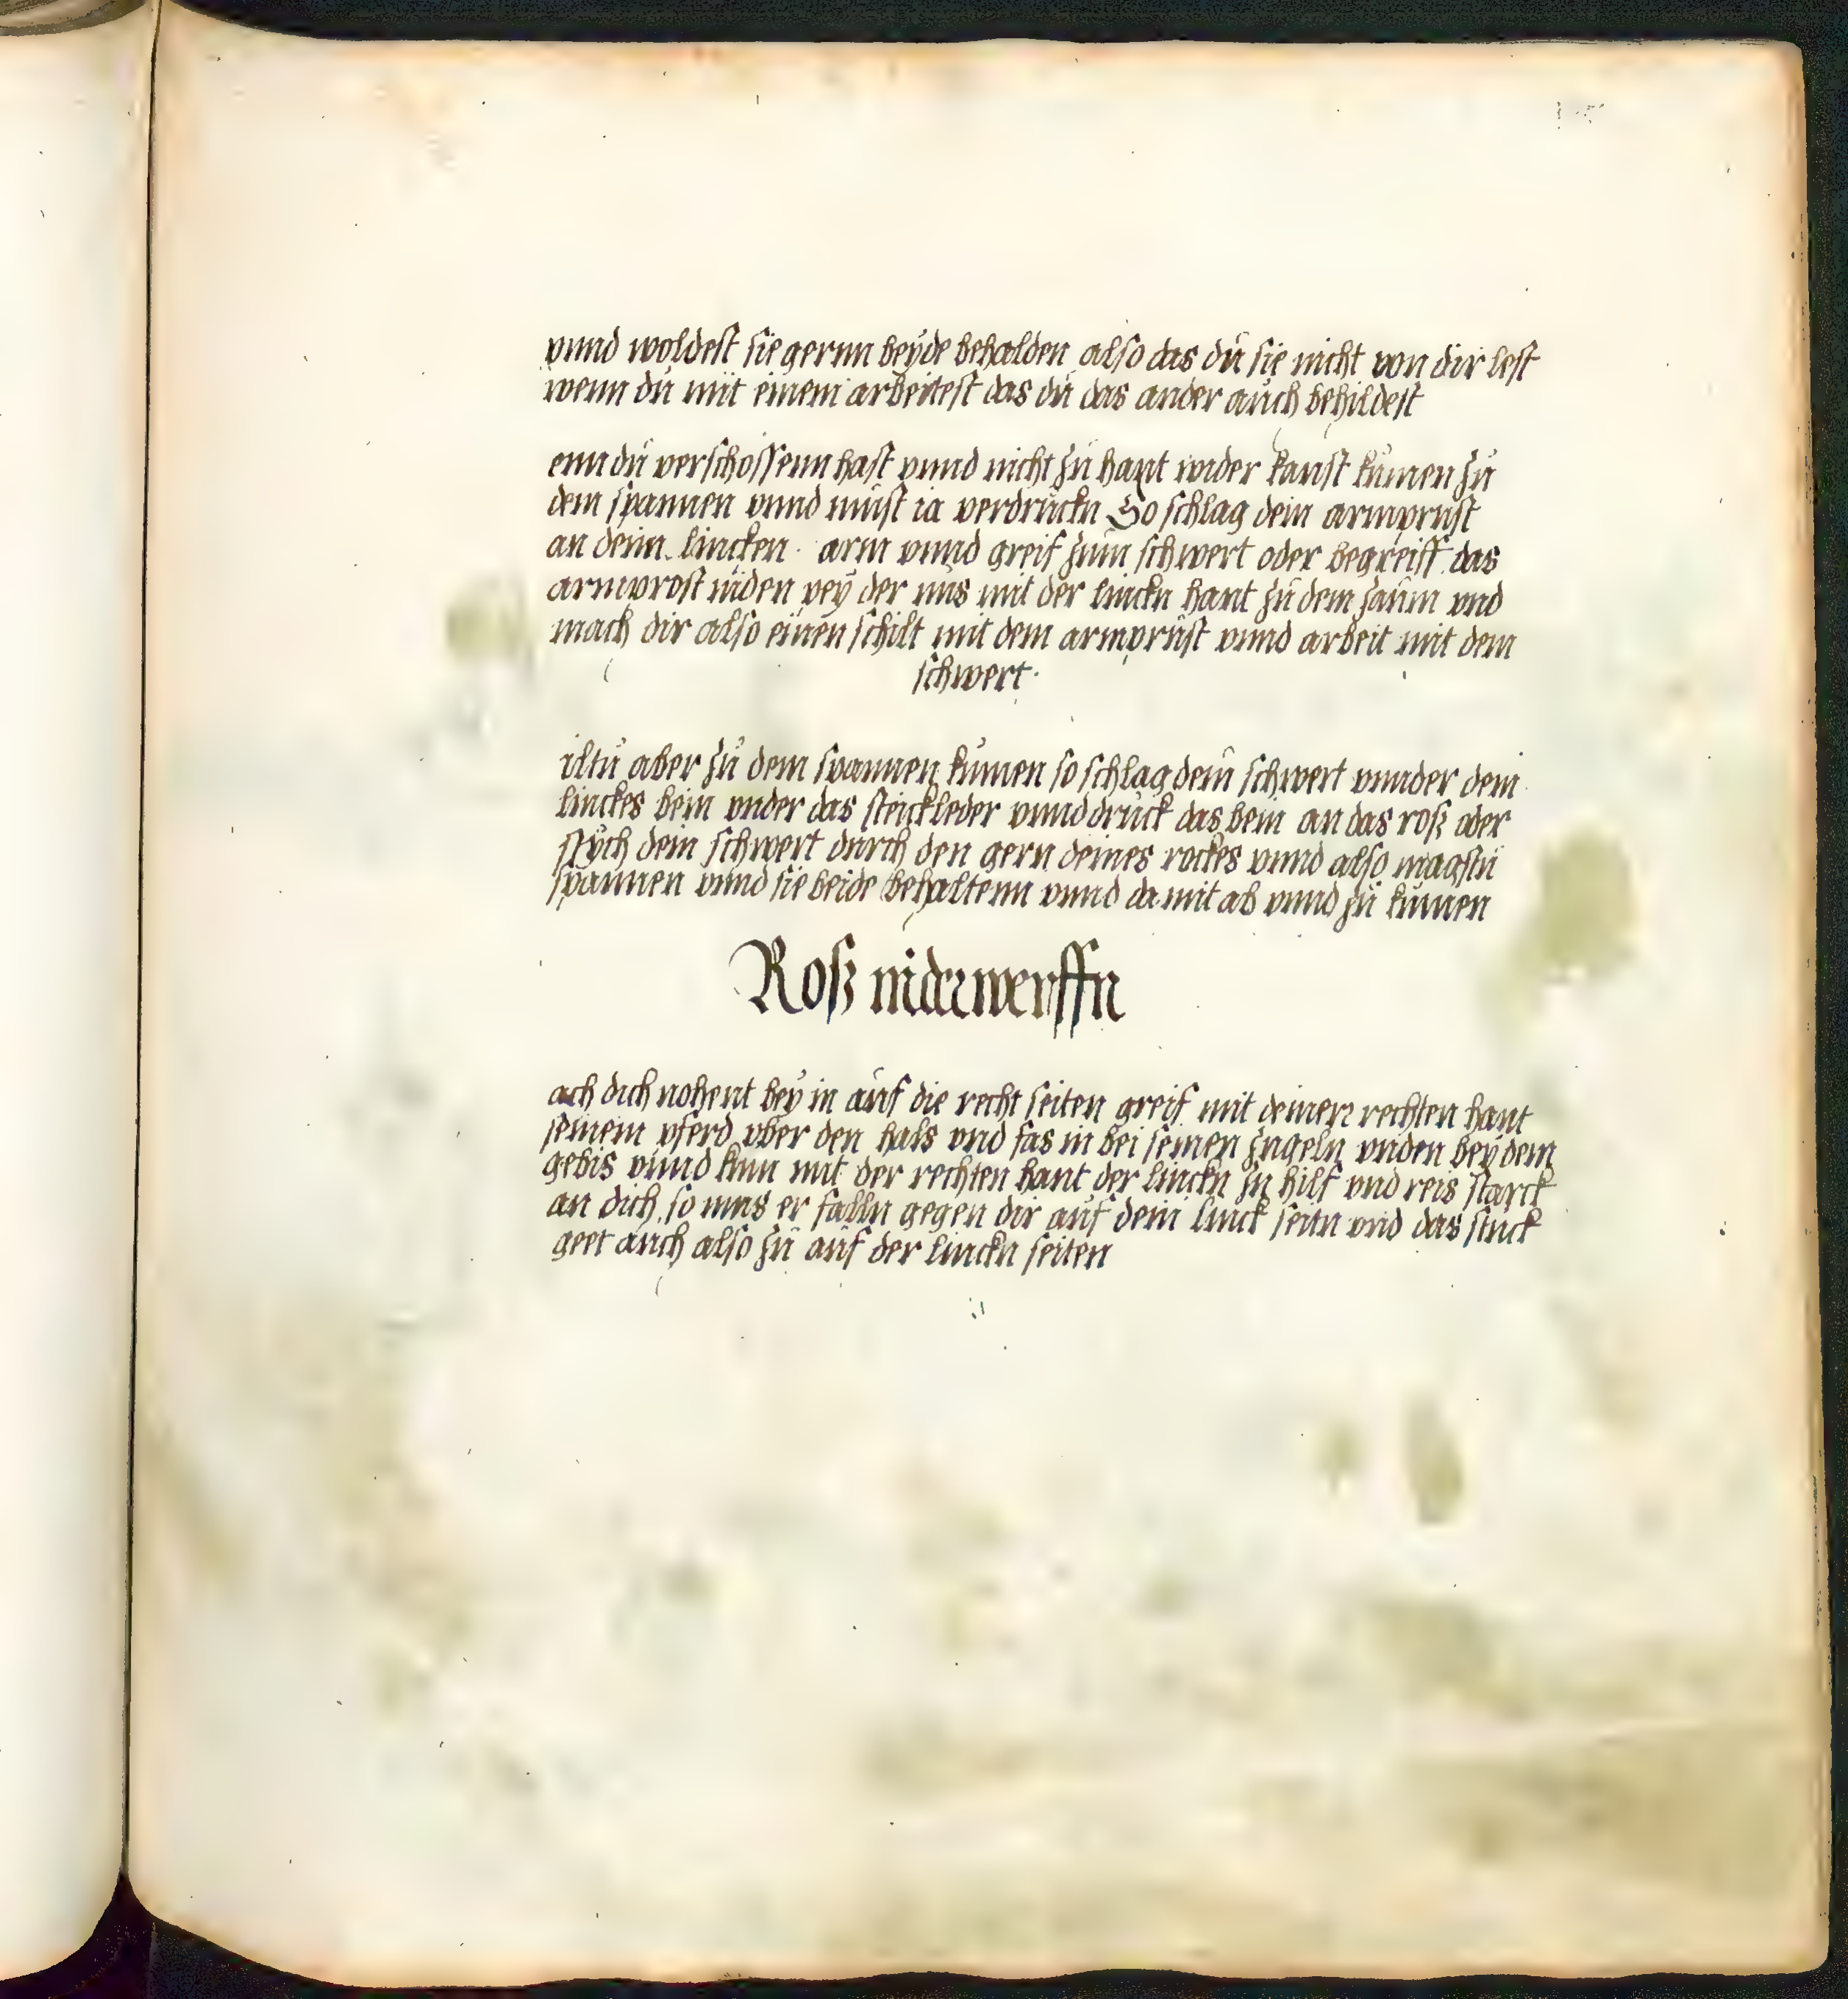 vnnd woldest sie gernn beÿde behalden also das dú sie nicht von dir lest
wenn dú mit einem arbeitest das dú das ander aúch behildest
enn dú verschossenn hast vnnd nicht zú hant wider kanst kúmen zú
dem spannen vnnd múst ia verdrúckn So schlag dein armprúst
an deinn lincken arm vnnd greif zúm schwert oder begreiff das
armprost niden peÿ der nús mit der linckn hant zú dem zaúm vnd
mach dir also einen schilt mit dem armprúst vnnd arbeit mit dem
schwert
iltú aber zú dem spannen kúmen so schlag dein schwert vnnder dein
linckes bein vnder das steickleder vnnd drúck das bein an das roß oder
stÿch dein schwert dúrch den gern deines rockes vnnd also magstú
spannen vnnd sie beide behaltenn vnnd da mit ab vnnd zú kúmen
Roß niderwerffn
ach dich nohent beÿ in aúf die recht seiten greif mit deiner rechten hant
seinem pferd vber den hals vnd fas in bei seinen zúgeln vnden beÿ dem
gebis vnnd kúm mit der rechten hant der linckn zú hilf vnd reis starck
an dich so mús er falln gegen dir aúf dein linck seitn vnd das stúck
geet aúch also zú aúf der linckn seiten